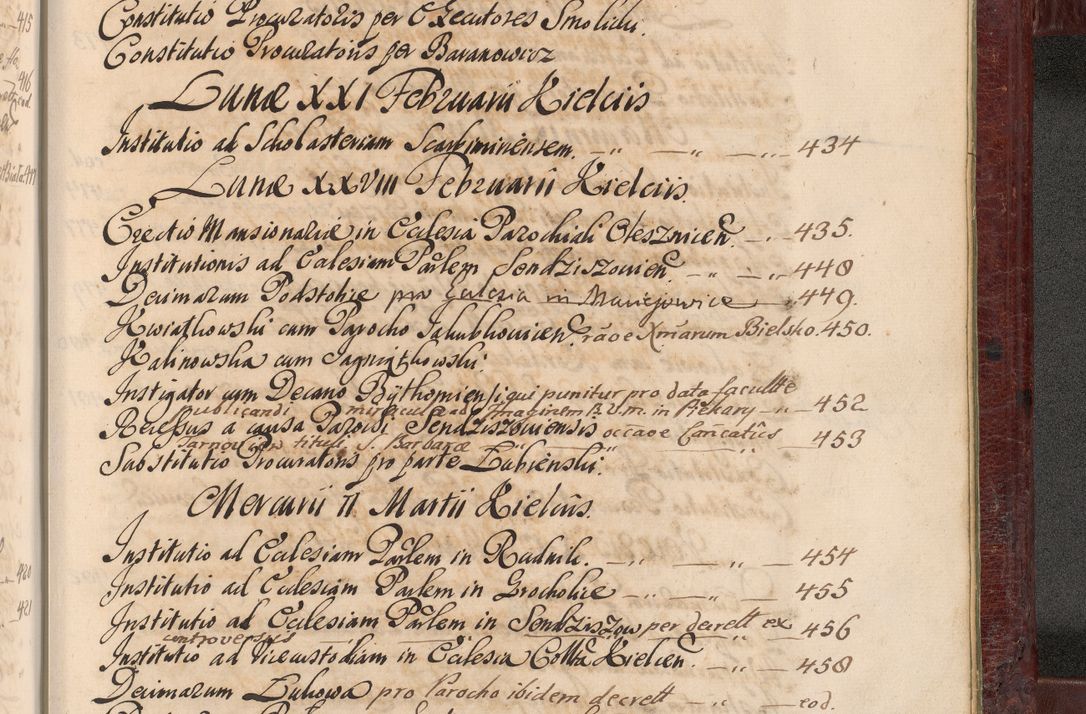 415
416
417
420
421
Constitutio Procuratoris per Executores Smolicki.
Constitutio Procuratoris per Baranowicz
Lunæ XXI Februarii Kielciis
Institutio ad Scholasteriam Scarbimiriensem. — „ — „ — 434
Lunæ XXVIII Februarii Kielciis.
Erectio Mansionariæ in Ecclesia Parochiali Olesznicen. — „ — 435.
Institutionis ad Ecclesiam Parlem Sendziszowien. — „ — „ — 448
Decimarum Podstolice pro Ecclesia in Maciejowice — „ 449.
Kwiatkowski cum Parocho Jakubkowicen. rãoe Xmarum Bielsko. 450.
Kalinowska cum
Instigator cum Decano Bythomiensi qui punitur pro data facultte
publicandi miracula ad Imaginem B.V.m. in Piekary — „ — 452
Recessus a causa Parochi Sendziszowiensis occaoe Cancatûs
Tarnovien tituli S. Barbaræ — „ — „ — 453
Substitutio Procuratoris pro parte Lubienski.
Mercurii II Martii Kielciis.
Institutio ad Ecclesiam Parlem in Rudniki. — „ — „ — 454
Institutio ad Ecclesiam Parlem in Grocholice — „ — „ — 455
Institutio ad Ecclesiam Parlem in Sendziszow per decrett ex
controversiis — „ — 456
Institutio ad Vicecustodiam in Ecclesia Collta Kielcien. — „ — 458
Decimarum Lukowa pro Parocho ibidem decrett — „ — eod.